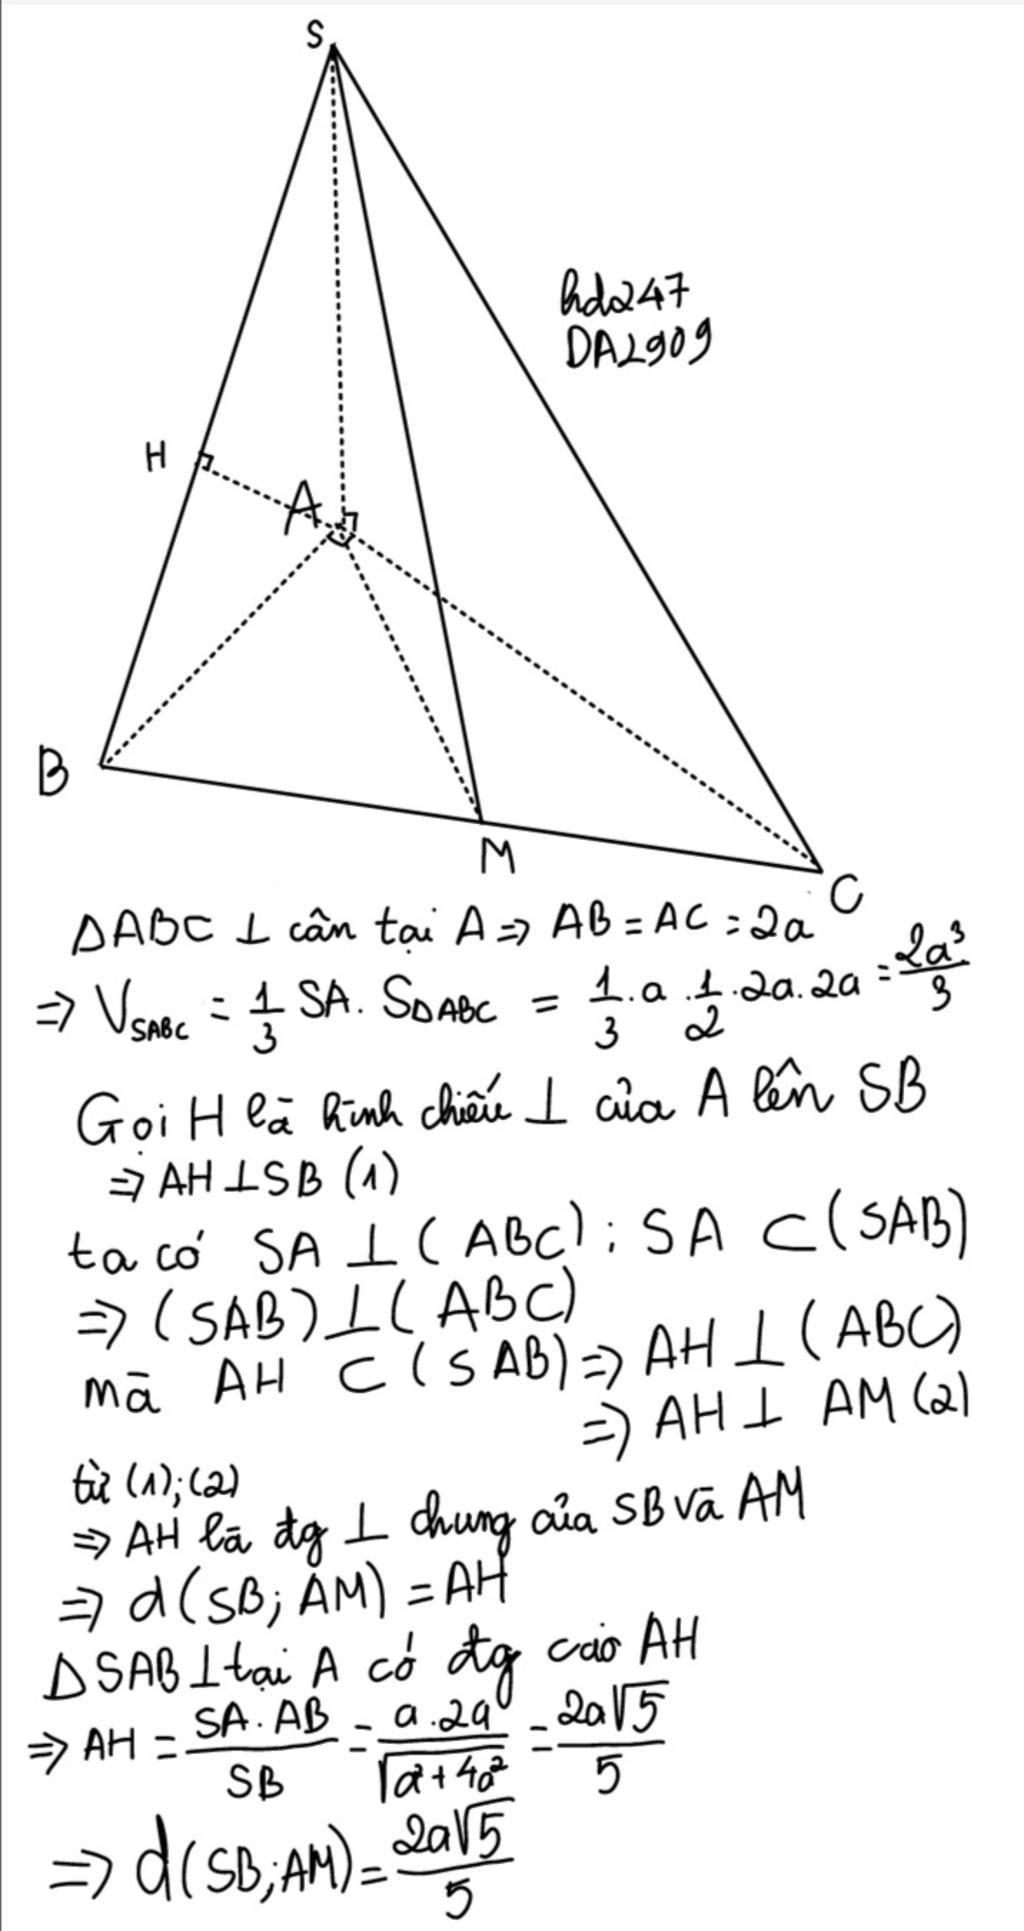 S
hd247
DA2909
H
A
B
M
C
ΔABC ⊥ cân tại A => AB = AC = 2a
=> V_SABC = 1/3 SA. S_ΔABC = 1/3 . a . 1/2 . 2a. 2a = 2a³/3
Gọi H là hình chiếu ⊥ của A lên SB
=> AH ⊥ SB (1)
ta có SA ⊥ (ABC) ; SA ⊂ (SAB)
=> (SAB) ⊥ (ABC)
mà AH ⊂ (SAB) => AH ⊥ (ABC)
=> AH ⊥ AM (2)
từ (1);(2)
=> AH là đg ⊥ chung của SB và AM
=> d(SB; AM) = AH
ΔSAB ⊥ tại A có đg cao AH
=> AH = SA . AB / SB = a . 2a / √(a² + 4a²) = 2a√5 / 5
=> d(SB;AM) = 2a√5 / 5